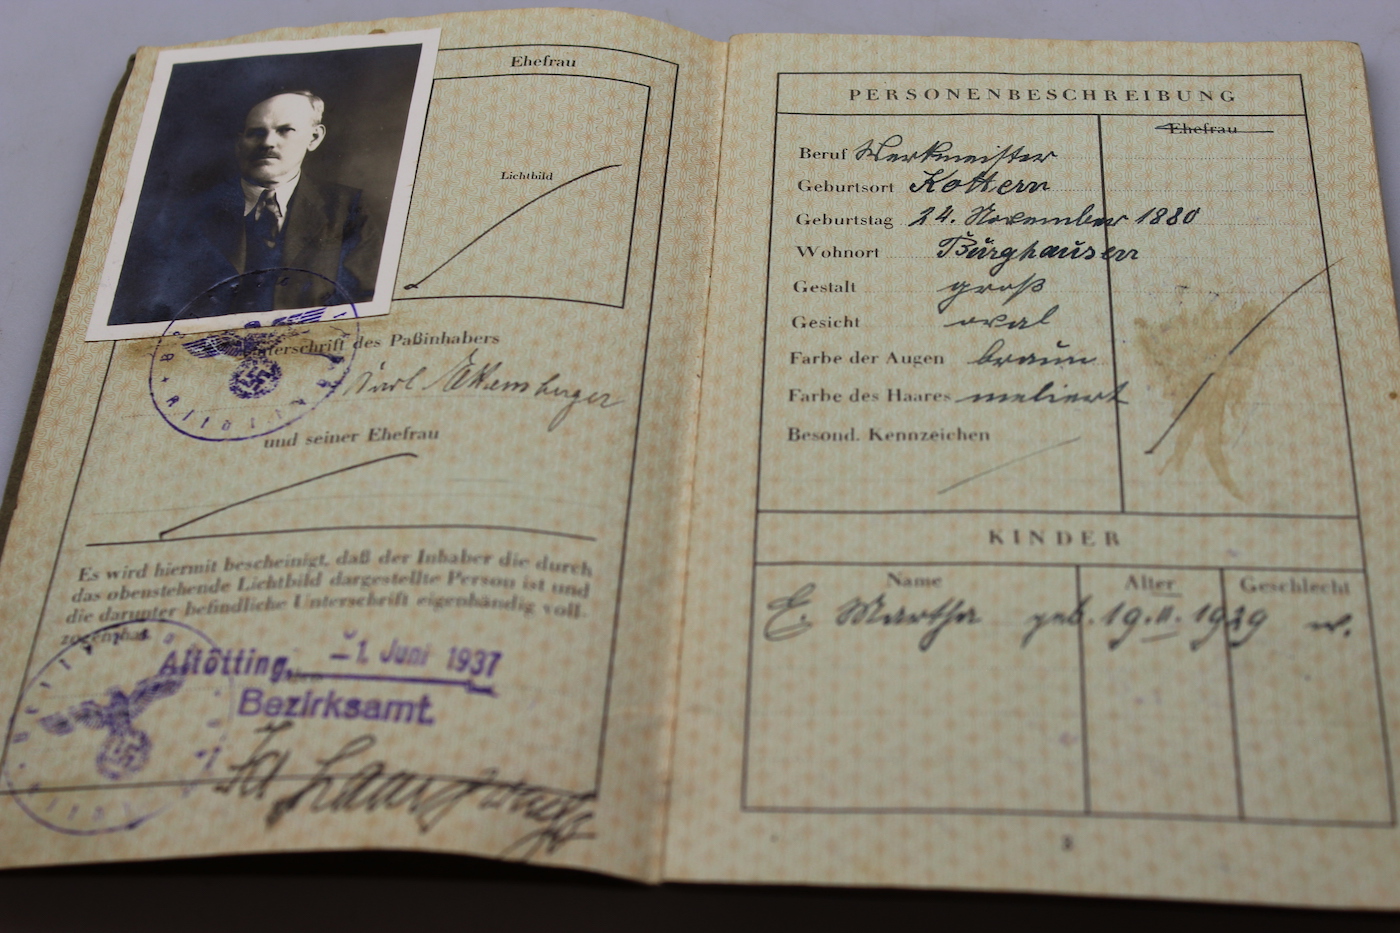 Ehefrau
Lichtbild
Unterschrift des Paßinhabers
Karl
und seiner Ehefrau
Es wird hiermit bescheinigt, daß der Inhaber die durch
das obenstehende Lichtbild dargestellte Person ist und
die darunter befindliche Unterschrift eigenhändig voll-
zogen hat.
Altötting, den -1. Juni 1937
Bezirksamt.
PERSONENBESCHREIBUNG
Ehefrau
Beruf Werkmeister
Geburtsort Kottern
Geburtstag 24. November 1880
Wohnort Burghausen
Gestalt groß
Gesicht oval
Farbe der Augen braun
Farbe des Haares meliert
Besond. Kennzeichen
KINDER
Name Alter Geschlecht
E. Martha geb. 19.II.1929 w.